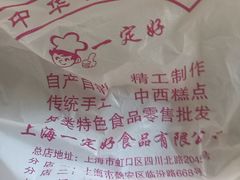 中华
一定好
自产自销 精工制作
传统手工 中西糕点
各类特色食品零售批发
上海一定好食品有限公司
总店地址：上海市虹口区四川北路204
分店一：上海市静安区临汾路668号
分店二：